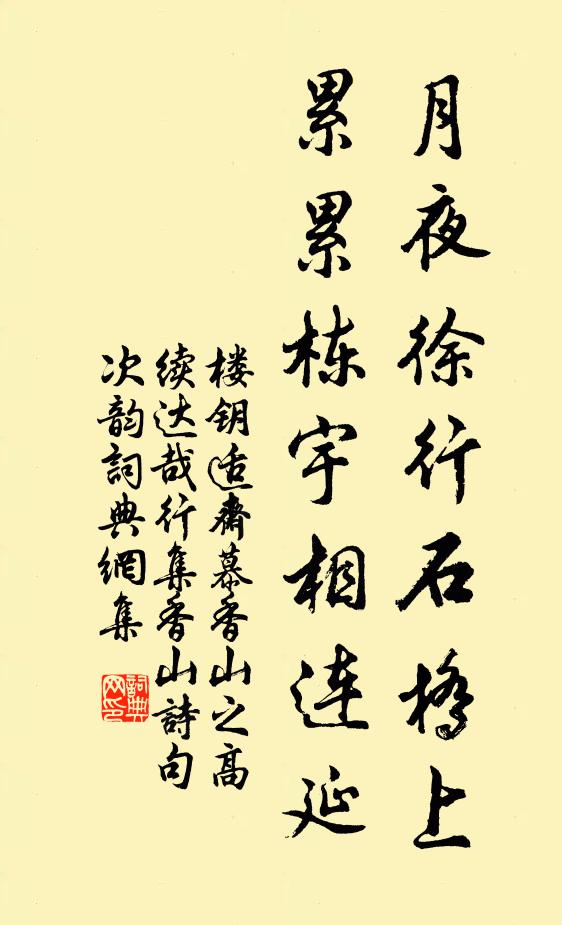 月夜徐行石橋上
累累栋宇相連延
楼钥适齋慕香山之高
续达哉行集香山詩句
次韵詞典網集
詞典网印